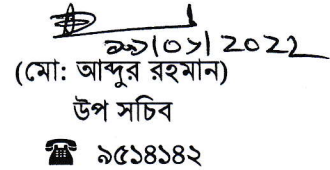 ০১/2022
(মো: আব্দুর রহমান)
উপ সচিব
☎ ৯৫১৪১৪২